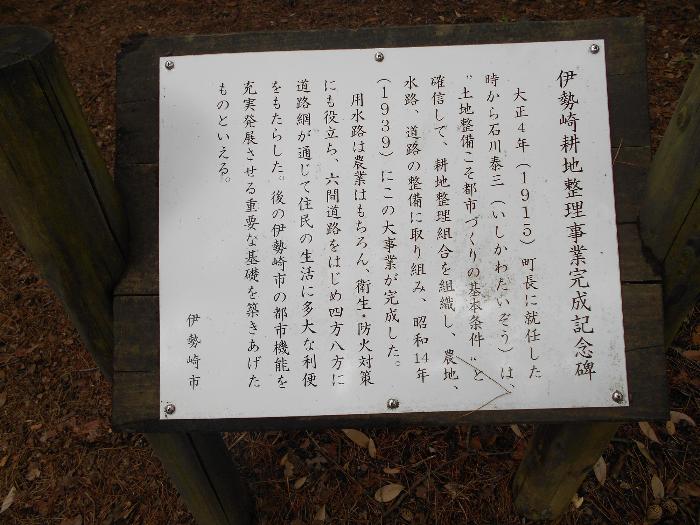 伊勢崎耕地整理事業完成記念碑
大正4年（1915）町長に就任した
時から石川泰三（いしかわたいぞう）は、
"土地整備こそ都市づくりの基本条件"と
確信して、耕地整理組合を組織し、農地、
水路、道路の整備に取り組み、昭和14年
（1939）にこの大事業が完成した。
用水路は農業はもちろん、衛生・防火対策
にも役立ち、六間道路をはじめ四方八方に
道路網が通じて住民の生活に多大な利便
をもたらした。後の伊勢崎市の都市機能を
充実発展させる重要な基礎を築きあげた
ものといえる。
伊勢崎市